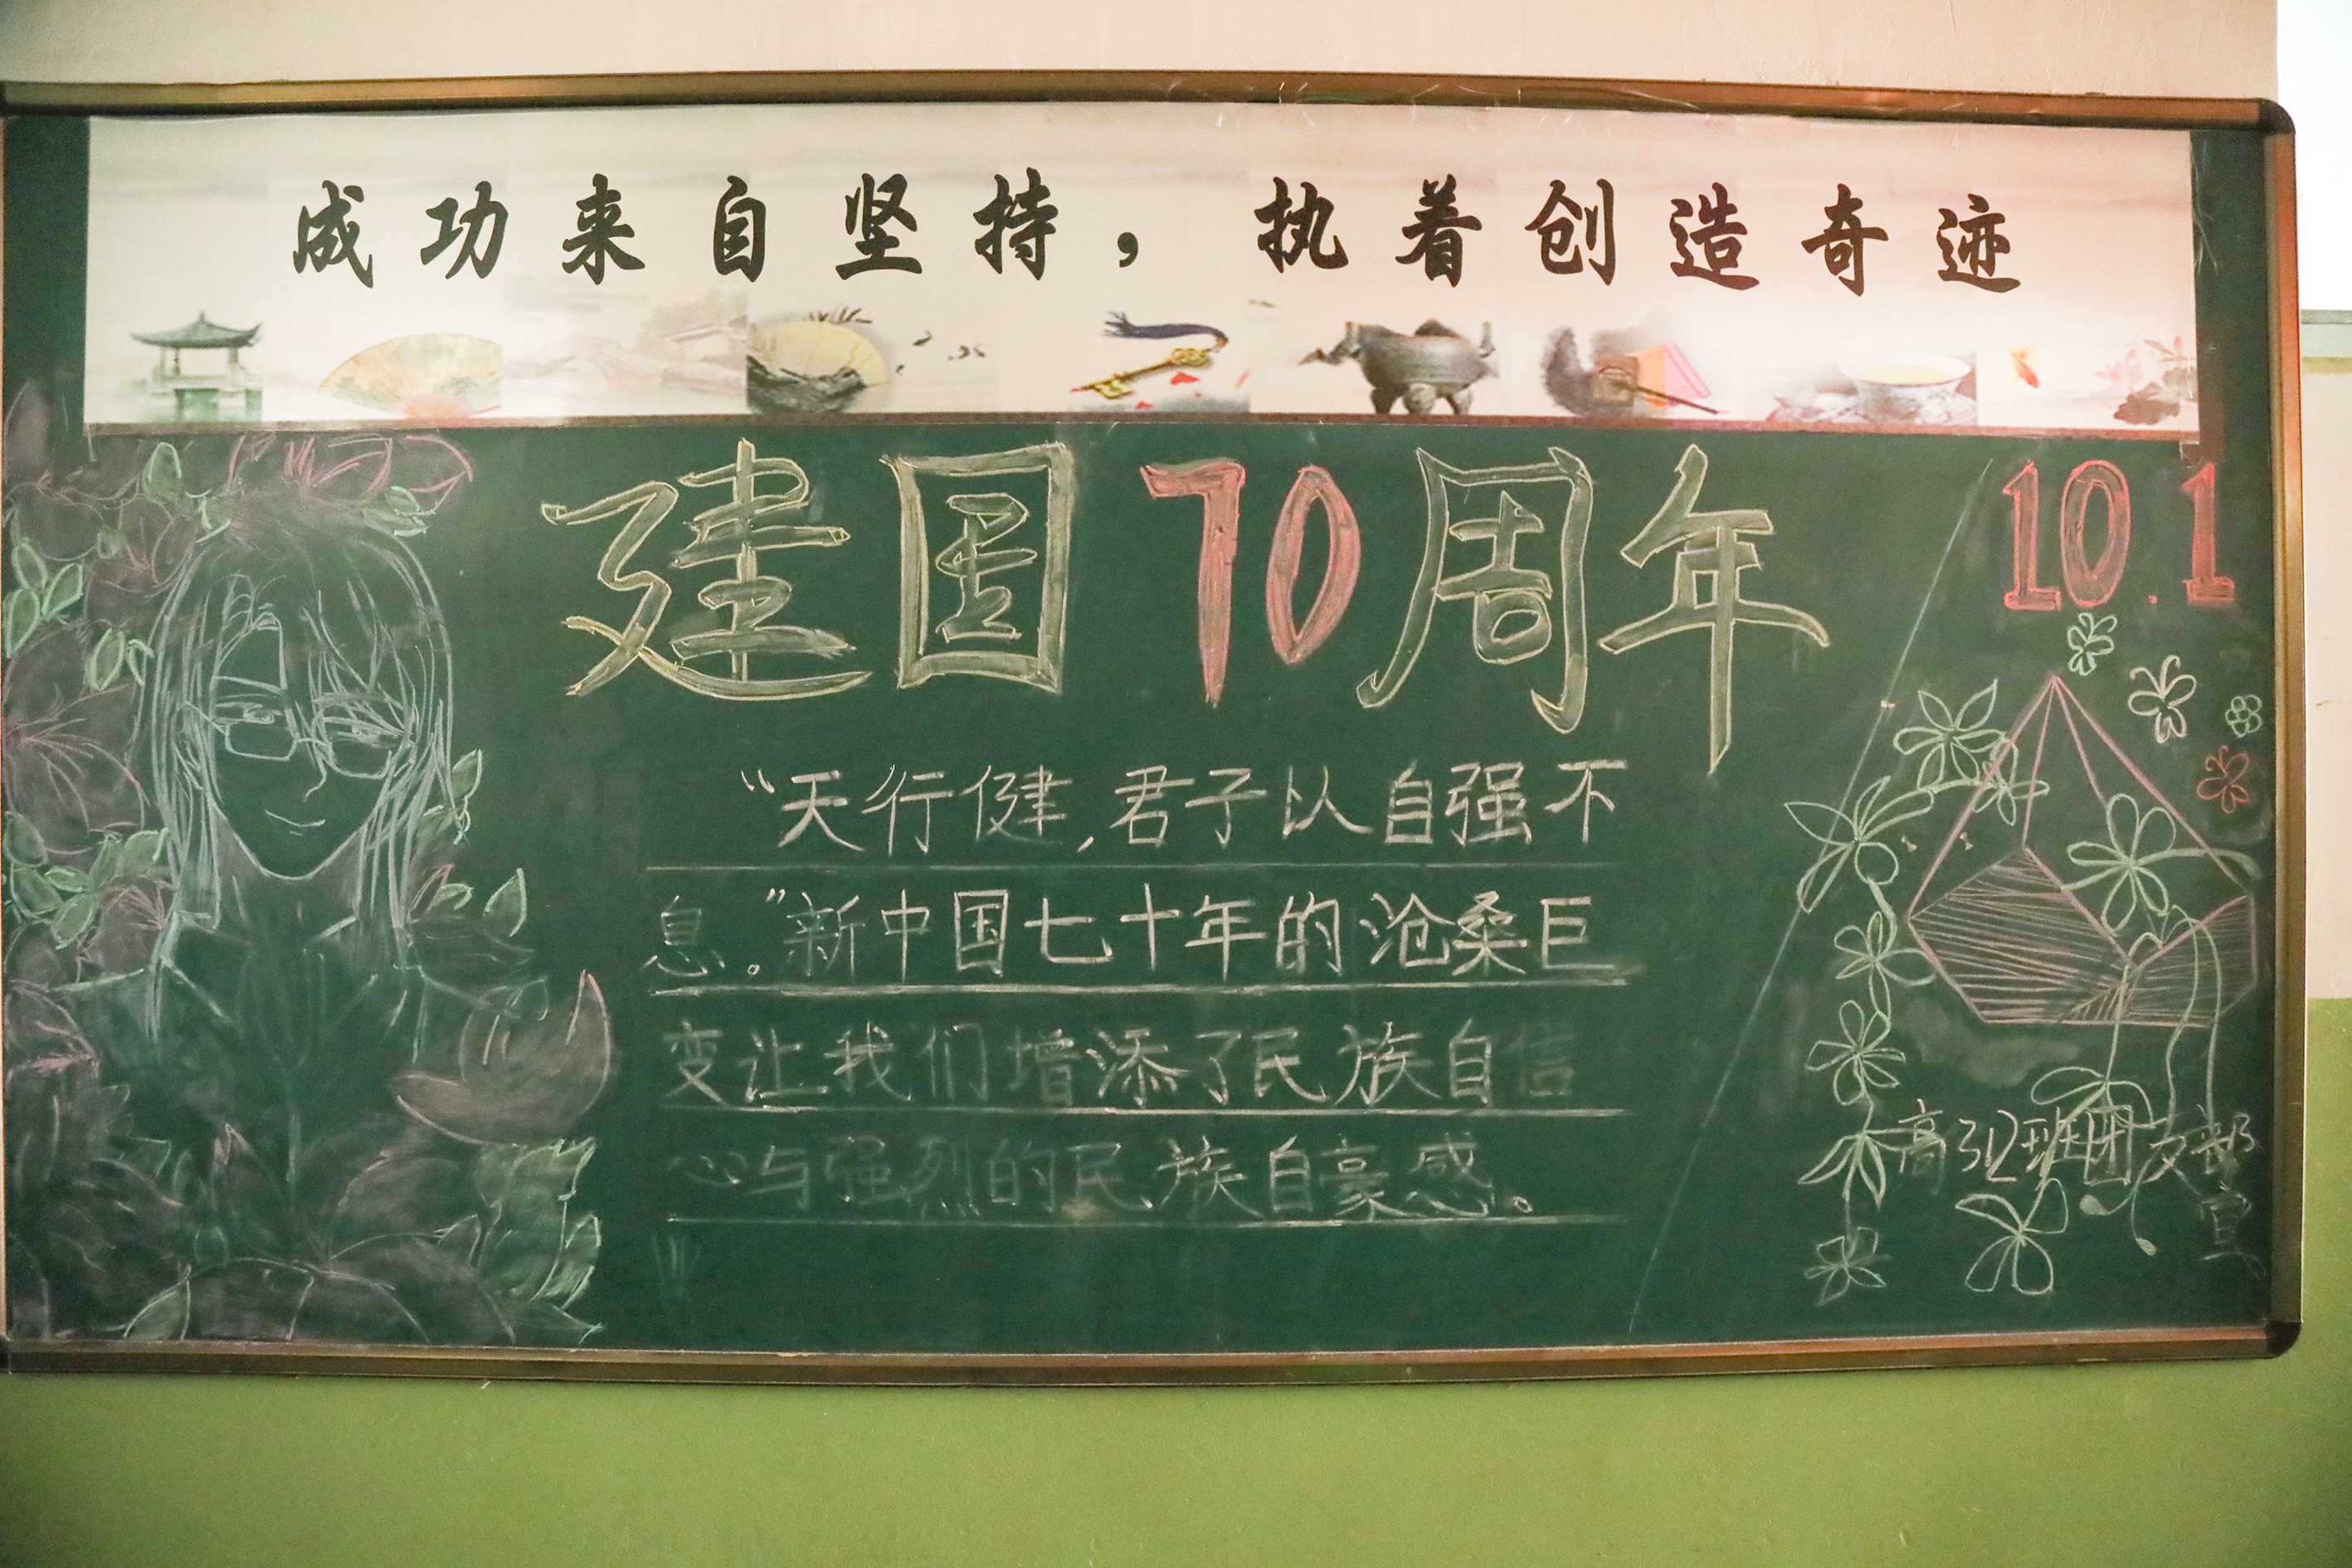 成功来自坚持，执着创造奇迹
建国70周年
10.1
“天行健，君子以自强不
息。”新中国七十年的沧桑巨
变让我们增添了民族自信
心与强烈的民族自豪感。
高312班团支部
宣